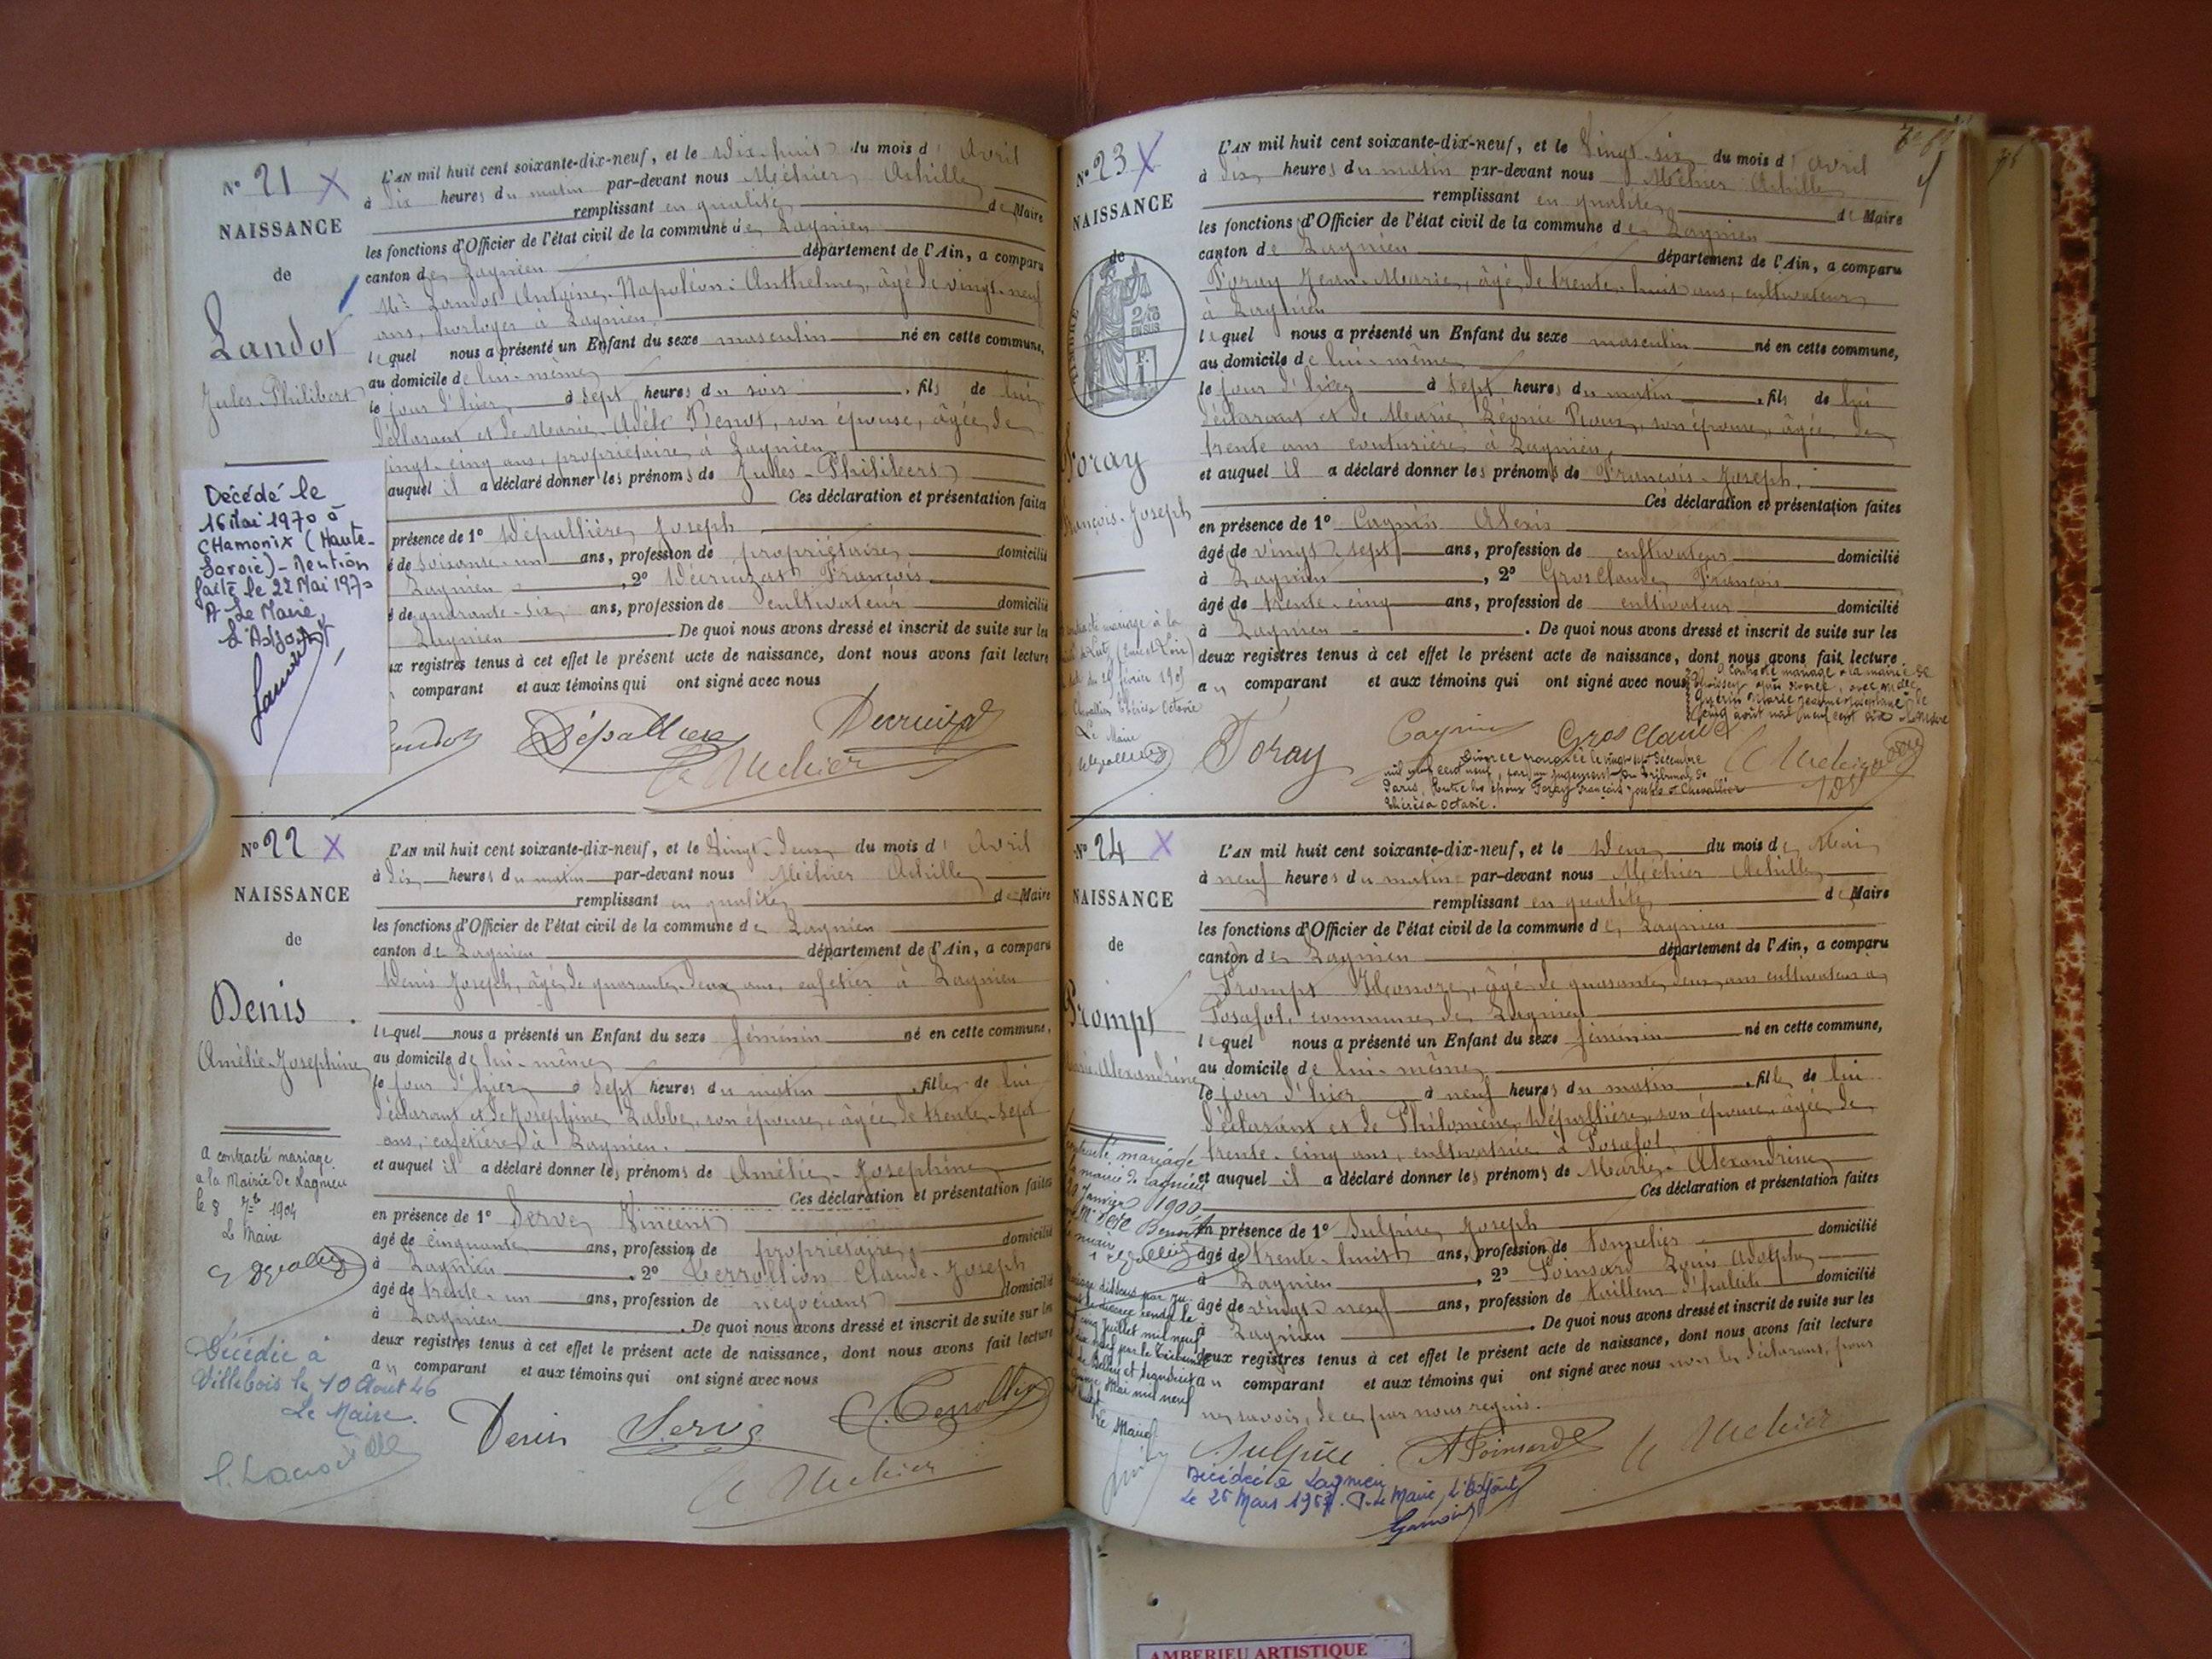 N° 21 X
NAISSANCE
de
Landot
Jules-Philibert
Décédé le
16 Mai 1970 à
CHamonix (Haute-
Savoie) - Mention
faite le 22 Mai 1970
Le Maire,
L'Adjoint
L'AN mil huit cent soixante-dix-neuf, et le dix-huit du mois d'Avril
à dix heures du matin par-devant nous Méhier Achille
remplissant en qualité de Maire
les fonctions d'Officier de l'état civil de la commune de Lagnieu
canton de Lagnieu département de l'Ain, a comparu
Mr Landot Antoine-Napoléon-Anthelme, âgé de vingt-neuf
ans, horloger à Lagnieu
lequel nous a présenté un Enfant du sexe masculin né en cette commune,
au domicile de lui-même
le jour d'hier à sept heures du soir, fils de lui
déclarant et de Marie-Adèle Benot, son épouse, âgée de
vingt-cinq ans, propriétaire à Lagnieu
auquel il a déclaré donner les prénoms de Jules-Philibert
Ces déclaration et présentation faites
présence de 1° Dépallière Joseph
é de soixante-un ans, profession de propriétaire domicilié
Lagnieu, 2° Décruizat François
é de quarante-six ans, profession de cultivateur domicilié
Lagnieu. De quoi nous avons dressé et inscrit de suite sur les
ux registres tenus à cet effet le présent acte de naissance, dont nous avons fait lecture
comparant et aux témoins qui ont signé avec nous
Dépallière Decruizat
Méhier
N° 22 X
NAISSANCE
de
Denis
Amélie-Joséphine
A contracté mariage
à la Mairie de Lagnieu
le 8 7bre 1904
Le Maire
Décédée à
Villebois le 10 Août 46
Le Maire.
L'AN mil huit cent soixante-dix-neuf, et le vingt-deux du mois d'Avril
à dix heures du matin par-devant nous Méhier Achille
remplissant en qualité de Maire
les fonctions d'Officier de l'état civil de la commune de Lagnieu
canton de Lagnieu département de l'Ain, a comparu
Denis Joseph, âgé de quarante-deux ans, cafetier à Lagnieu
lequel nous a présenté un Enfant du sexe féminin né en cette commune,
au domicile de lui-même
le jour d'hier à sept heures du matin, fille de lui
déclarant et de Joséphine Labbe, son épouse, âgée de trente-sept
ans, cafetière à Lagnieu.
et auquel il a déclaré donner les prénoms de Amélie-Joséphine
Ces déclaration et présentation faites
en présence de 1° Serve Vincent
âgé de cinquante ans, profession de propriétaire, domicilié
à Lagnieu, 2° Claude-Joseph
âgé de trente-un ans, profession de négociant domicilié
à Lagnieu. De quoi nous avons dressé et inscrit de suite sur les
deux registres tenus à cet effet le présent acte de naissance, dont nous avons fait lecture
au comparant et aux témoins qui ont signé avec nous
Denis Serve
Méhier
N° 23 X
NAISSANCE
de
TIMBRE
2/10
EN SUS
Foray
François-Joseph
contracté mariage à la
février 19
Chevallier Thérésa Octavie
Le Maire
L'AN mil huit cent soixante-dix-neuf, et le vingt-six du mois d'Avril
à dix heures du matin par-devant nous Méhier Achille
remplissant en qualité de Maire
les fonctions d'Officier de l'état civil de la commune de Lagnieu
canton de Lagnieu département de l'Ain, a comparu
Foray Jean-Marie, âgé de trente-huit ans, cultivateur
à Lagnieu
lequel nous a présenté un Enfant du sexe masculin né en cette commune,
au domicile de lui-même
le jour d'hier à sept heures du matin, fils de lui
déclarant et de Marie Léonie Roux, son épouse, âgée de
trente ans couturière à Lagnieu,
et auquel il a déclaré donner les prénoms de François-Joseph.
Ces déclaration et présentation faites
en présence de 1° Cagnin Alexis
âgé de vingt-sept ans, profession de cultivateur domicilié
à Lagnieu, 2° Grosclaude François
âgé de trente-cinq ans, profession de cultivateur domicilié
à Lagnieu. De quoi nous avons dressé et inscrit de suite sur les
deux registres tenus à cet effet le présent acte de naissance, dont nous avons fait lecture
au comparant et aux témoins qui ont signé avec nous
contracté mariage à la mairie de
Foray Cagnin Grosclaude
Méhier
Divorce prononcé le vingt sept décembre
mil neuf cent neuf, par un jugement du Tribunal de
Paris, Entre les époux Foray François Joseph et Chevallier
Thérésa Octavie.
N° 24 X
NAISSANCE
de
Prompt
Marie-Alexandrine
contracté mariage
mairie de Lagnieu
Janvier 1900
Benoît
L'AN mil huit cent soixante-dix-neuf, et le deux du mois de Mai
à neuf heures du matin par-devant nous Méhier Achille
remplissant en qualité de Maire
les fonctions d'Officier de l'état civil de la commune de Lagnieu
canton de Lagnieu département de l'Ain, a comparu
Prompt Eléonore, âgé de quarante-deux ans cultivateur à
Posafol, commune de Lagnieu
lequel nous a présenté un Enfant du sexe féminin né en cette commune,
au domicile de lui-même
le jour d'hier à neuf heures du matin, fille de lui
déclarant et de Philomène Dépallière, son épouse, âgée de
trente-cinq ans, cultivatrice à Posafol
et auquel il a déclaré donner les prénoms de Marie-Alexandrine
Ces déclaration et présentation faites
en présence de 1° Sulpice Joseph domicilié
âgé de trente-huit ans, profession de tonnelier
à Lagnieu, 2° Poinsard Louis Adolphe
âgé de vingt-neuf ans, profession de tailleur d'habits domicilié
à Lagnieu. De quoi nous avons dressé et inscrit de suite sur les
deux registres tenus à cet effet le présent acte de naissance, dont nous avons fait lecture
au comparant et aux témoins qui ont signé avec nous non le déclarant, pour
ne savoir, de ce par nous requis.
Sulpice A Poinsard Méhier
Décédée à Lagnieu
Le 25 Mars 195 P. Le Maire, L'Adjoint
AMBERIEU ARTISTIQUE